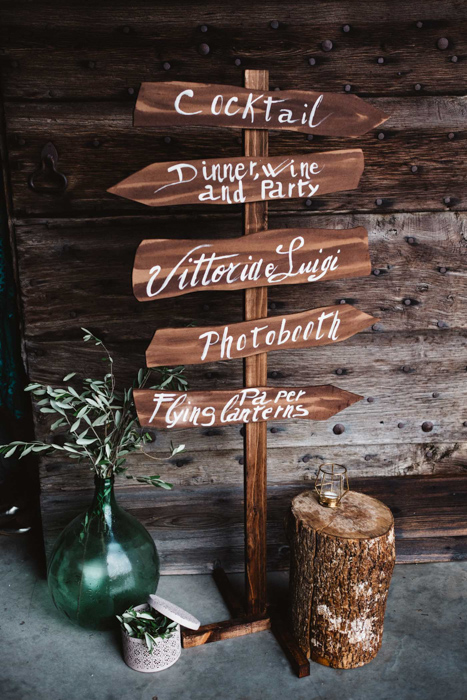 Cocktail
Dinner, wine
and Party
Vittoria e Luigi
Photobooth
Flying Paper
lanterns